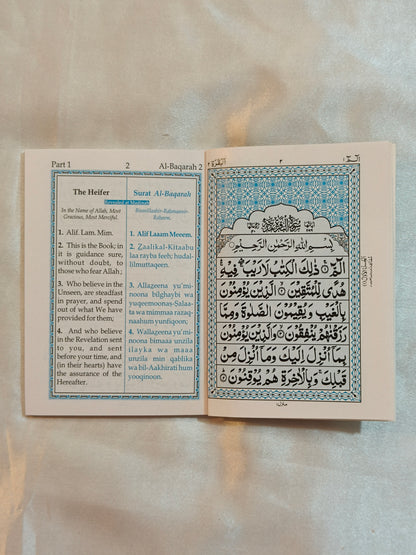 Part 1 2 Al-Baqarah 2
The Heifer
In the Name of Allah, Most
Gracious, Most Merciful.
1. Alif. Lam. Mim.
2. This is the Book; in
it is guidance sure,
without doubt, to
those who fear Allah;
3. Who believe in the
Unseen, are steadfast
in prayer, and spend
out of what We have
provided for them;
4. And who believe
in the Revelation sent
to you, and sent
before your time, and
(in their hearts) have
the assurance of the
Hereafter.
Surat Al-Baqarah
Revealed at Madinah
Bismillaahir-Rahmaanir-
Raheem.
1. Alif Laaam Meeem.
2. Zaalikal-Kitaabu
laa rayba feeh; hudal-
lilmuttaqeen.
3. Allazeena yu'mi-
noona bilghaybi wa
yuqeemoonas-Salaa-
ta wa mimmaa razaq-
naahum yunfiqoon;
4. Wallazeena yu'mi-
noona bimaa unzila
ilayka wa maaa
unzila min qablika
wa bil-Aakhirati hum
yooqinoon.
البقرة ٢ ٢ الٓمّٓ ١
بِسْمِ اللهِ الرَّحْمٰنِ الرَّحِيْمِ
الٓمّٓ ۚ ذٰلِكَ الْكِتٰبُ لَا رَيْبَ ۛ فِيْهِ ۛ
هُدًى لِّلْمُتَّقِيْنَ ۙ الَّذِيْنَ يُؤْمِنُوْنَ
بِالْغَيْبِ وَيُقِيْمُوْنَ الصَّلٰوةَ وَمِمَّا
رَزَقْنٰهُمْ يُنْفِقُوْنَ ۙ وَالَّذِيْنَ يُؤْمِنُوْنَ
بِمَآ اُنْزِلَ اِلَيْكَ وَمَآ اُنْزِلَ مِنْ
قَبْلِكَ ۚ وَبِالْاٰخِرَةِ هُمْ يُوْقِنُوْنَ ؕ